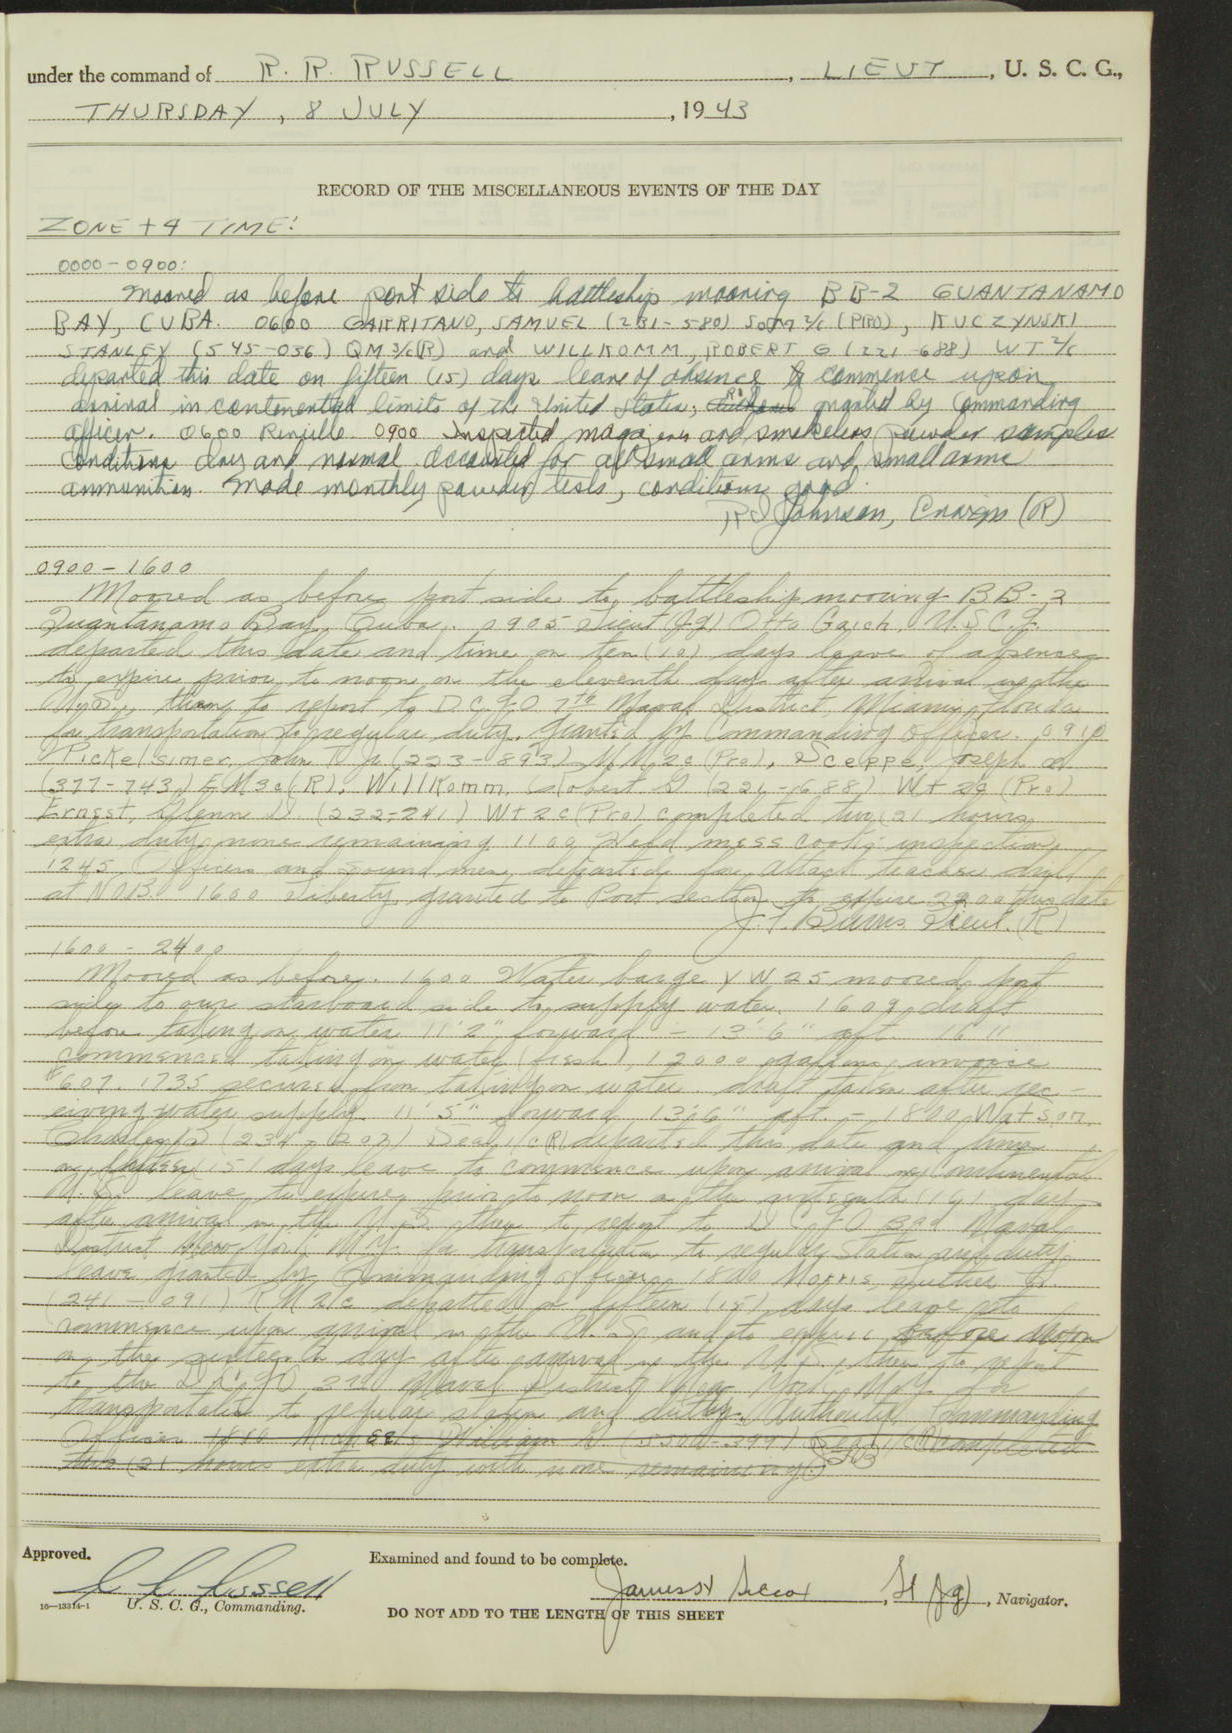 under the command of R. R. RUSSELL, LIEUT, U. S. C. G.,
THURSDAY, 8 JULY, 1943
RECORD OF THE MISCELLANEOUS EVENTS OF THE DAY
ZONE +4 TIME:
0000-0900:
Moored as before port side to battleship mooring BB-2 GUANTANAMO
BAY, CUBA. 0600 GARRITANO, SAMUEL (231-580) SoM 2/c (PRO), KUCZYNSKI
STANLEY (545-036) QM 3/c(R) and WILLKOMM, ROBERT G (221-688) WT 2/c
departed this date on fifteen (15) days leave of absence to commence upon
arrival in continental limits of the United States, granted by Commanding
officer. 0600 0900 Inspected magazines and smokeless powder samples
conditions dry and normal. Accounted for all small arms and small arms
ammunition. Made monthly powder tests, conditions good.
Johnson, Ensign (R)
0900-1600
Moored as before port side to battleship mooring BB-2
Guantanamo Bay, Cuba. 0905 Lieut (jg) Otto U.S.C.G.
departed this date and time on ten (10) days leave of absence
to expire prior to noon on the eleventh day after arrival in the
U.S., then to report to D.C.G.O. 7th Naval District, Miami, Florida
for transportation to regular duty. Granted by Commanding Officer. 0910
Pickelsimer, John Jr (223-893) MM 2c (Pro), Sceppe, Joseph
(377-743) EM3c (R), Willkomm, Robert G (221-688) Wt 2c (Pro)
Ernest, Glenn D. (232-241) Wt 2c (Pro) completed two (2) hours
extra duty none remaining. 1100 Held mess cooks inspection.
1245 Officers and sound men departed for attack teacher drill
at NOB. 1600 Liberty granted to Port section to expire 2200 this date
J. F. Burns Lieut. (R)
1600-2400
Moored as before. 1600 Water barge YW 25 moored port
side to our starboard side to supply water. 1609 draft
before taking on water 11'2" forward - 13'6" aft. 1611
commenced taking on water (fresh) 12000 gallons, invoice
#607. 1735 secured from taking on water. draft taken after rec-
eiving water supply 11'5" forward 13'6" aft. - 1800 Watson,
Charles D (234-202) Sea 1c (R) departed this date and time
on fifteen (15) days leave to commence upon arrival in Continental
U.S. leave to expire prior to noon on the sixteenth (16) day
after arrival in the U.S. then to report to D.C.G.O 3rd Naval
District New York, N.Y. for transportation to regular station and duty.
Leave granted by Commanding officer. 1800 Morris,
(241-091) RM 2/c departed on fifteen (15) days leave to
commence upon arrival in the U.S. and to expire before Noon
on the sixteenth day after arrival in the U.S., then to report
to the D.C.G.O 3rd Naval District New York, N.Y. for
transportation to regular station and duty. Authority, Commanding
Officer. 1810 William D (550-399) completed
two (2) hours extra duty with none remaining.
Approved.
Examined and found to be complete.
U. S. C. G., Commanding.
, Lt (jg), Navigator.
16—13314-1
DO NOT ADD TO THE LENGTH OF THIS SHEET